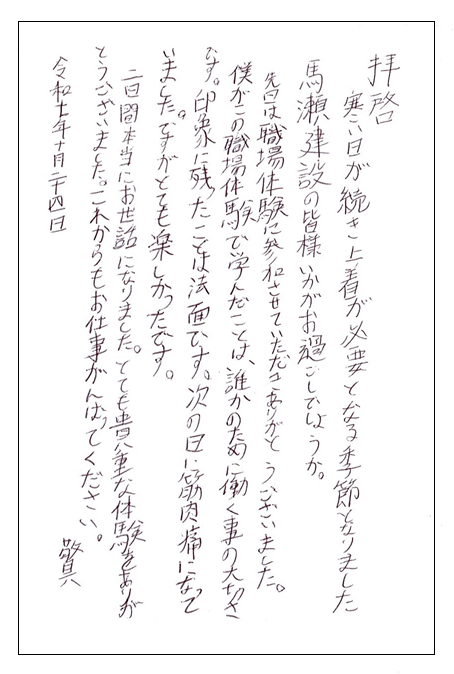 拝啓
寒い日が続き上着が必要となる季節となりました
馬瀬建設の皆様いかがお過ごしでしょうか。
先日は職場体験に参加させていただきありがとうございました。
僕がこの職場体験で学んだことは、誰かのために働く事の大切さ
です。印象に残ったことは法面です。次の日に筋肉痛になって
いました。ですがとても楽しかったです。
二日間本当にお世話になりました。とても貴重な体験をありが
とうございました。これからもお仕事がんばってください。
敬具
令和七年十月二十四日